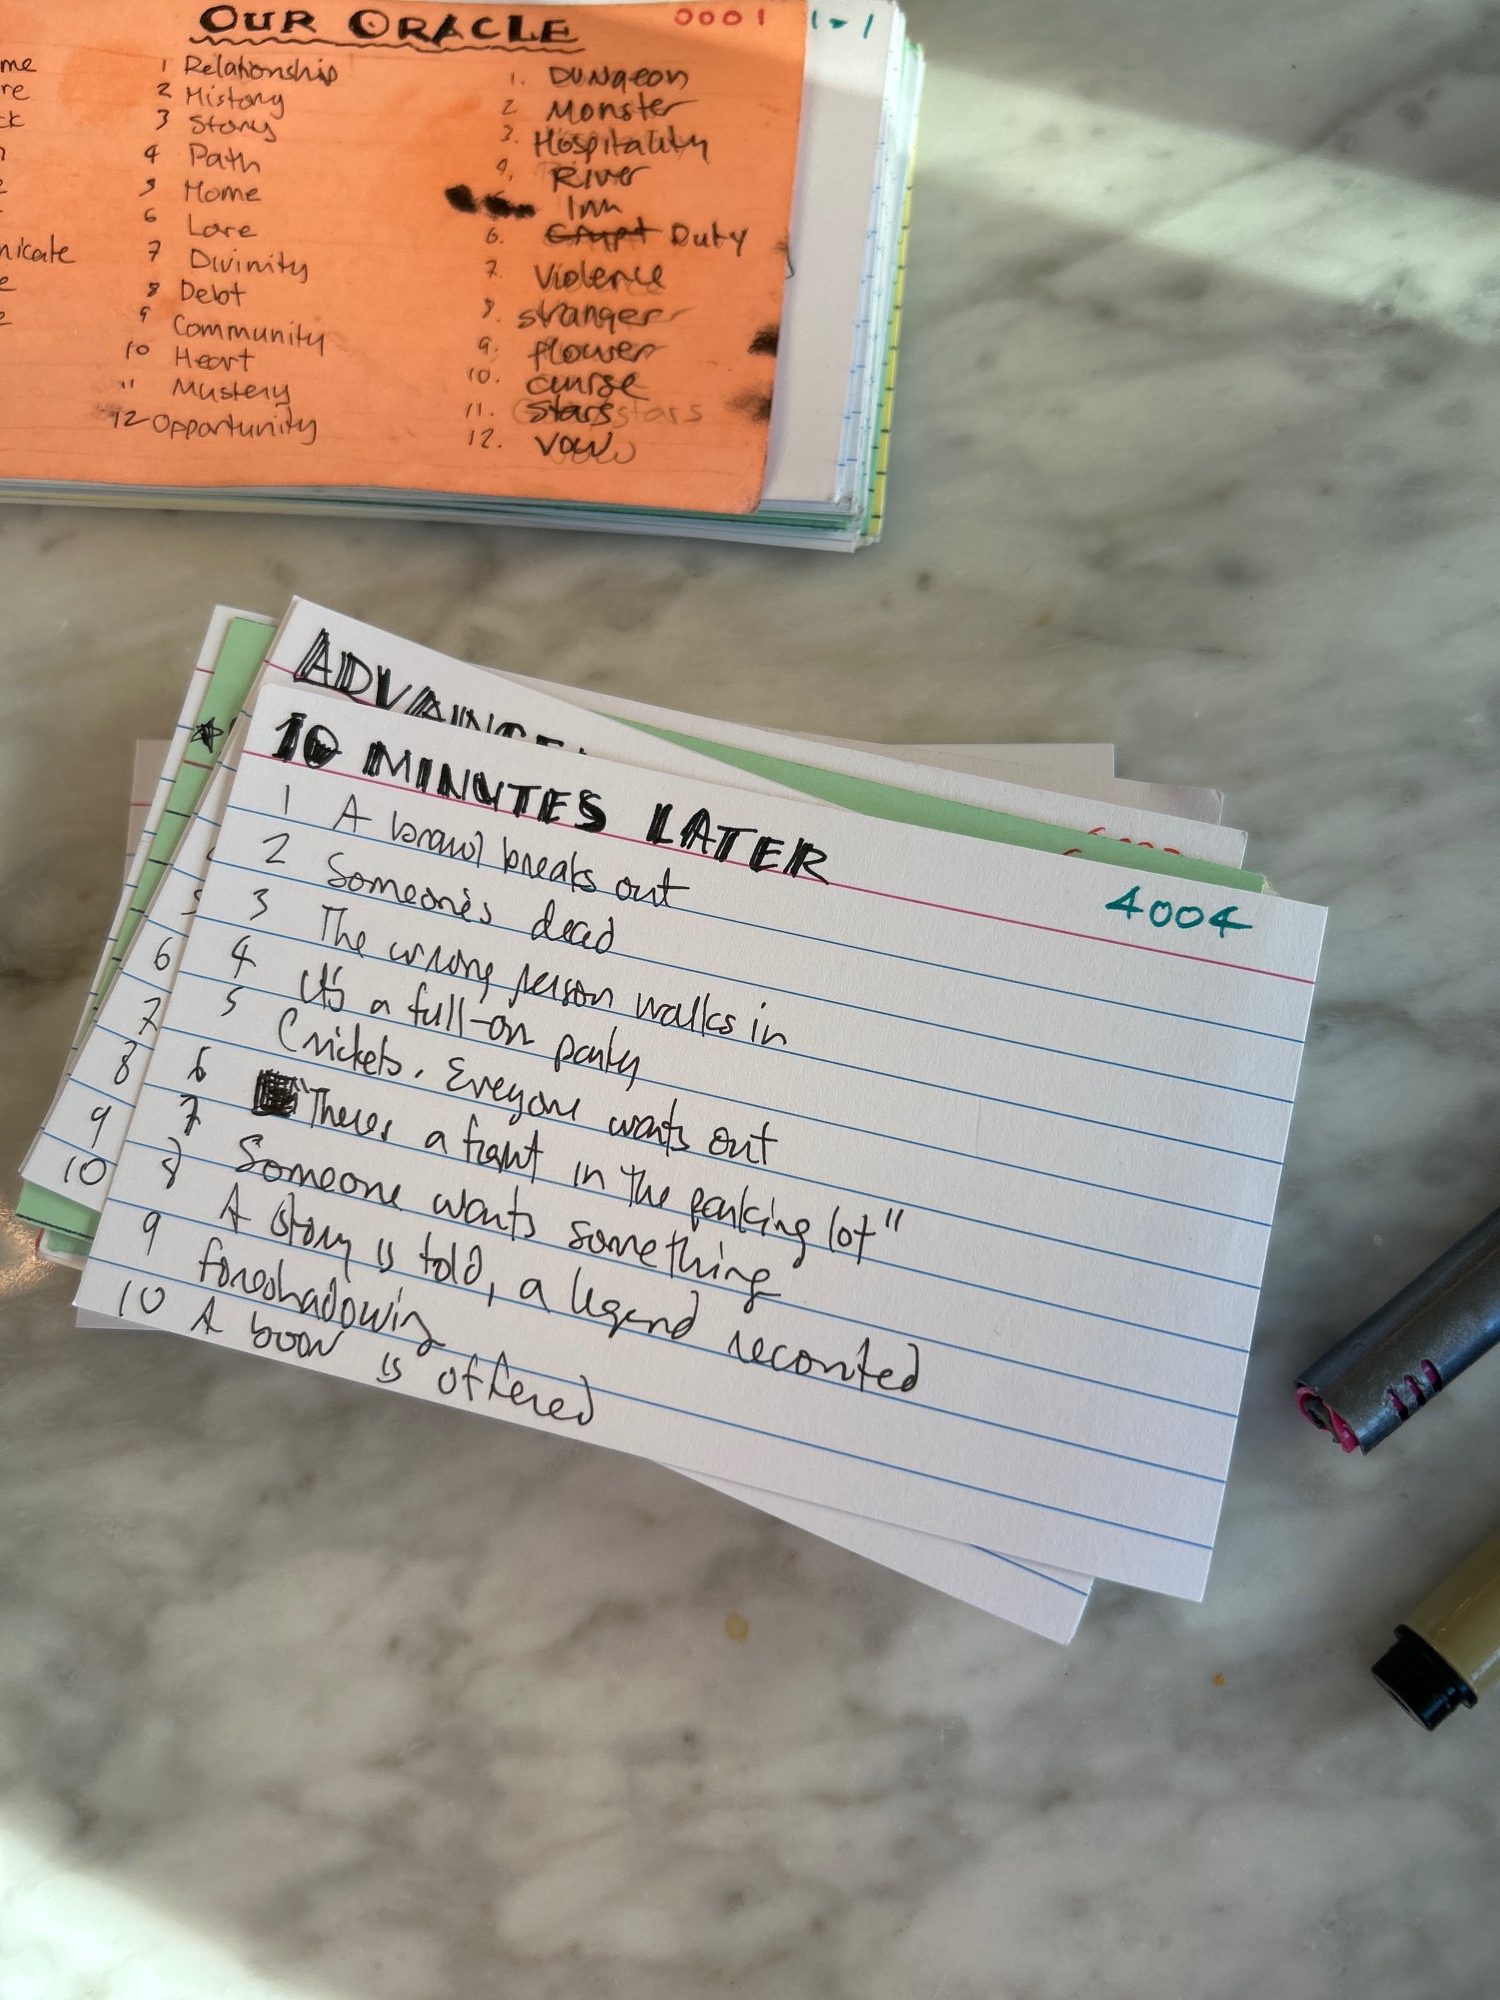 OUR ORACLE 0001 1-1
me
re
ck
nicate
1 Relationship
2 History
3 Story
4 Path
5 Home
6 Lore
7 Divinity
8 Debt
9 Community
10 Heart
11 Mystery
12 Opportunity
1. Dungeon
2 Monster
3. Hospitality
4. River
Inn
6. Crypt Duty
7. Violence
8. stranger
9. flower
10. curse
11. stars stars
12. vow
ADVANCE
10 MINUTES LATER
4004
1 A brawl breaks out
2 Someone's dead
3 The wrong person walks in
4 It's a full-on party
5 Crickets. Everyone wants out
6 "Theres a fight in the parking lot"
7 Someone wants something
8 A story is told, a legend reconted
9 foreshadowing
10 A boon is offered
5
6
7
8
9
10